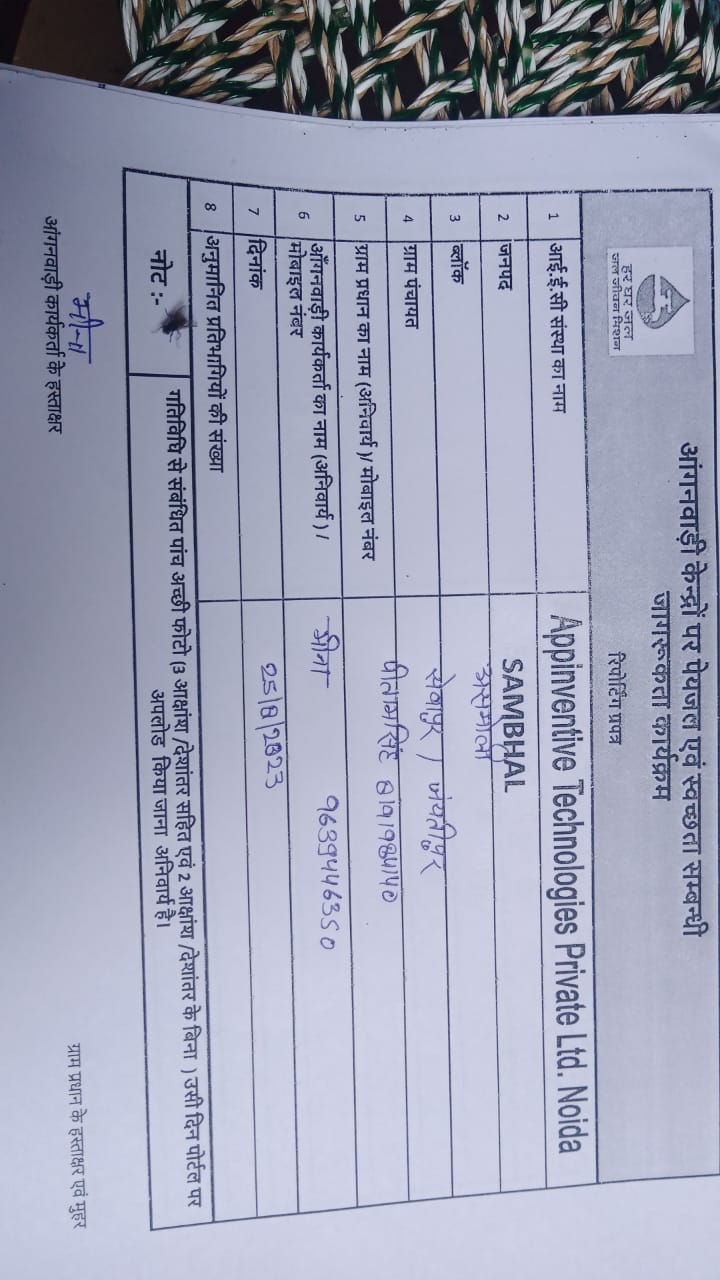 हर घर जल
जल जीवन मिशन
आंगनवाड़ी केन्द्रों पर पेयजल एवं स्वच्छता सम्बन्धी
जागरूकता कार्यक्रम
रिपोर्टिंग प्रपत्र
1 आई.ई.सी संस्था का नाम Appinventive Technologies Private Ltd. Noida
2 जनपद SAMBHAL
3 ब्लॉक असमोली
4 ग्राम पंचायत सेबापुर / जयतीपुर
5 ग्राम प्रधान का नाम (अनिवार्य)/ मोबाइल नंबर पीतमसिंह
6 आँगनवाड़ी कार्यकर्ता का नाम (अनिवार्य) / मीना 9639446350
मोबाइल नंबर
7 दिनांक 25/8/2023
8 अनुमानित प्रतिभागियों की संख्या
नोट :- गतिविधि से संबंधित पांच अच्छी फोटो (3 आक्षांश /देशांतर सहित एवं 2 आक्षांश /देशांतर के बिना ) उसी दिन पोर्टल पर
अपलोड किया जाना अनिवार्य है।
मीना
आंगनवाड़ी कार्यकर्ता के हस्ताक्षर
ग्राम प्रधान के हस्ताक्षर एवं मुहर